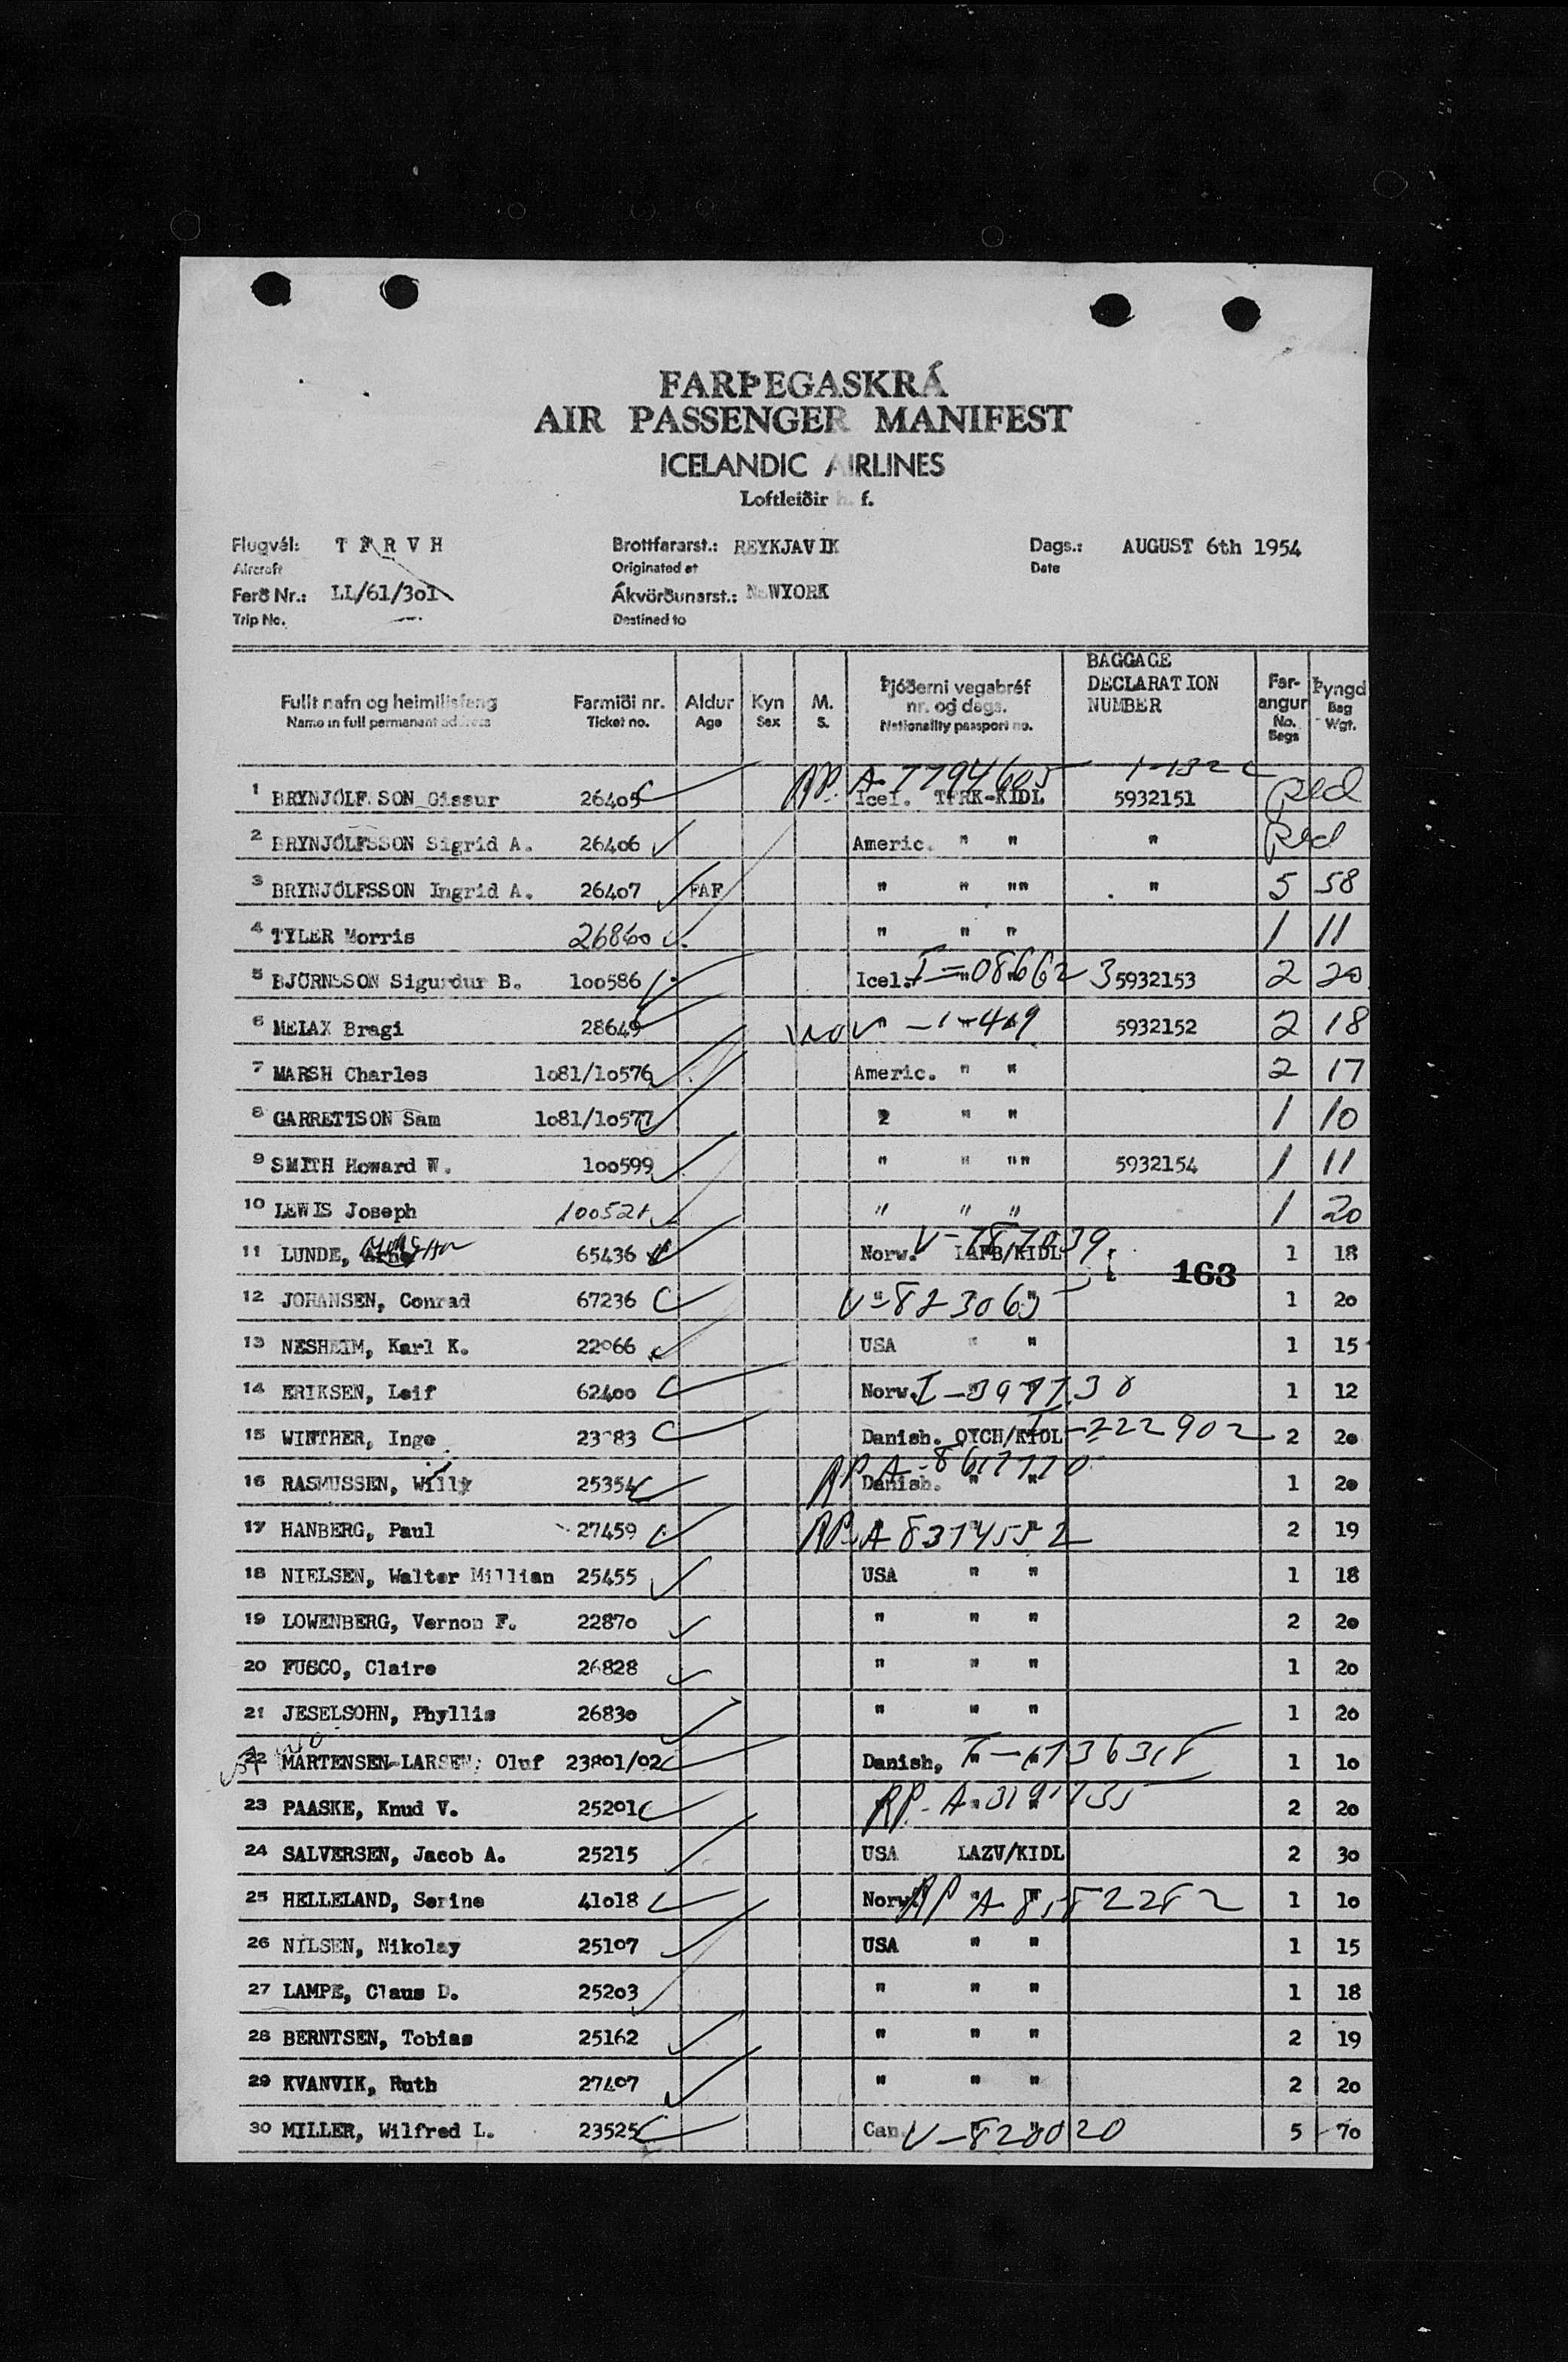 FARÞEGASKRÁ
AIR PASSENGER MANIFEST
ICELANDIC AIRLINES
Loftleiðir h. f.
Flugvél: T F R V H Brottfararst.: REYKJAVIK Dags.: AUGUST 6th 1954
Aircraft Originated at Date
Ferð Nr.: LL/61/3o1 Ákvörðunarst.: NeWYORK
Trip No. Destined to
Fullt nafn og heimilisfang Farmiði nr. Aldur Kyn M. Þjóðerni vegabréf nr. og dags. BAGGAGE DECLARATION NUMBER Far-angur Þyngd
Name in full permanent address Ticket no. Age Sex S. Nationality passport no. No. Begs Bag Wgt.
RP. A-7794605
1 BRYNJÓLF SON Gissur 264o5 Icel. TFRK-KIDL 5932151 Red
2 BRYNJÓLFSSON Sigrid A. 264o6 Americ. " " " Red
3 BRYNJÓLFSSON Ingrid A. 264o7 FAF " " "" " 5 58
4 TYLER Morris 26860 " " " 1 11
5 BJÖRNSSON Sigurdur B. 1oo586 Icel. I-08662 3 5932153 2 20
6 MELAX Bragi 28649 " 5932152 2 18
7 MARSH Charles 1o81/1o576 Americ. " " 2 17
8 GARRETTSON Sam 1o81/1o577 2 " " 1 10
9 SMITH Howard W. 1oo599 " " "" 5932154 1 11
10 LEWIS Joseph 100521 " " " 1 20
11 LUNDE, 65436 Norw. LAFB/KIDL 1 18
163
12 JOHANSEN, Conrad 67236 V-823065 " 1 2o
13 NESHEIM, Karl K. 22o66 USA " " 1 15
14 ERIKSEN, Leif 624oo Norw. 1 12
15 WINTHER, Inge 23783 Danish. OYCH/KIDL I-222902 2 2o
RP A-8617770
16 RASMUSSEN, Willy 25354 Danish. " " 1 2o
17 HANBERG, Paul 27459 RP-A 8374552 2 19
18 NIELSEN, Walter Millian 25455 USA " " 1 18
19 LOWENBERG, Vernon F. 2287o " " " 2 2o
20 FUSCO, Claire 26828 " " " 1 2o
21 JESELSOHN, Phyllis 2683o " " " 1 2o
22 MARTENSEN-LARSEN, Oluf 238o1/o2 Danish, 1 1o
23 PAASKE, Knud V. 252o1 RP- 2 2o
24 SALVERSEN, Jacob A. 25215 USA LAZV/KIDL 2 3o
25 HELLELAND, Serine 41o18 Norw. RP A 8,82282 1 1o
26 NILSEN, Nikolay 251o7 USA " " 1 15
27 LAMPE, Claus D. 252o3 " " " 1 18
28 BERNTSEN, Tobias 25162 " " " 2 19
29 KVANVIK, Ruth 274o7 " " " 2 2o
30 MILLER, Wilfred L. 23525 Can. V-820020 5 7o